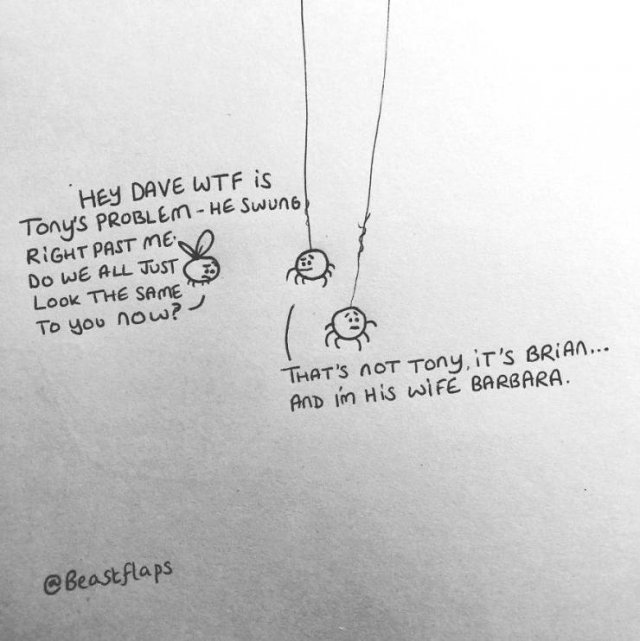 HEY DAVE WTF iS
TONY'S PROBLEM - HE SWUNG
RiGHT PAST ME.
DO WE ALL JUST
LOOK THE SAME
TO YOU NOW?
THAT'S NOT TONY, iT'S BRiAN...
AND i'm HiS WiFE BARBARA.
@Beastflaps